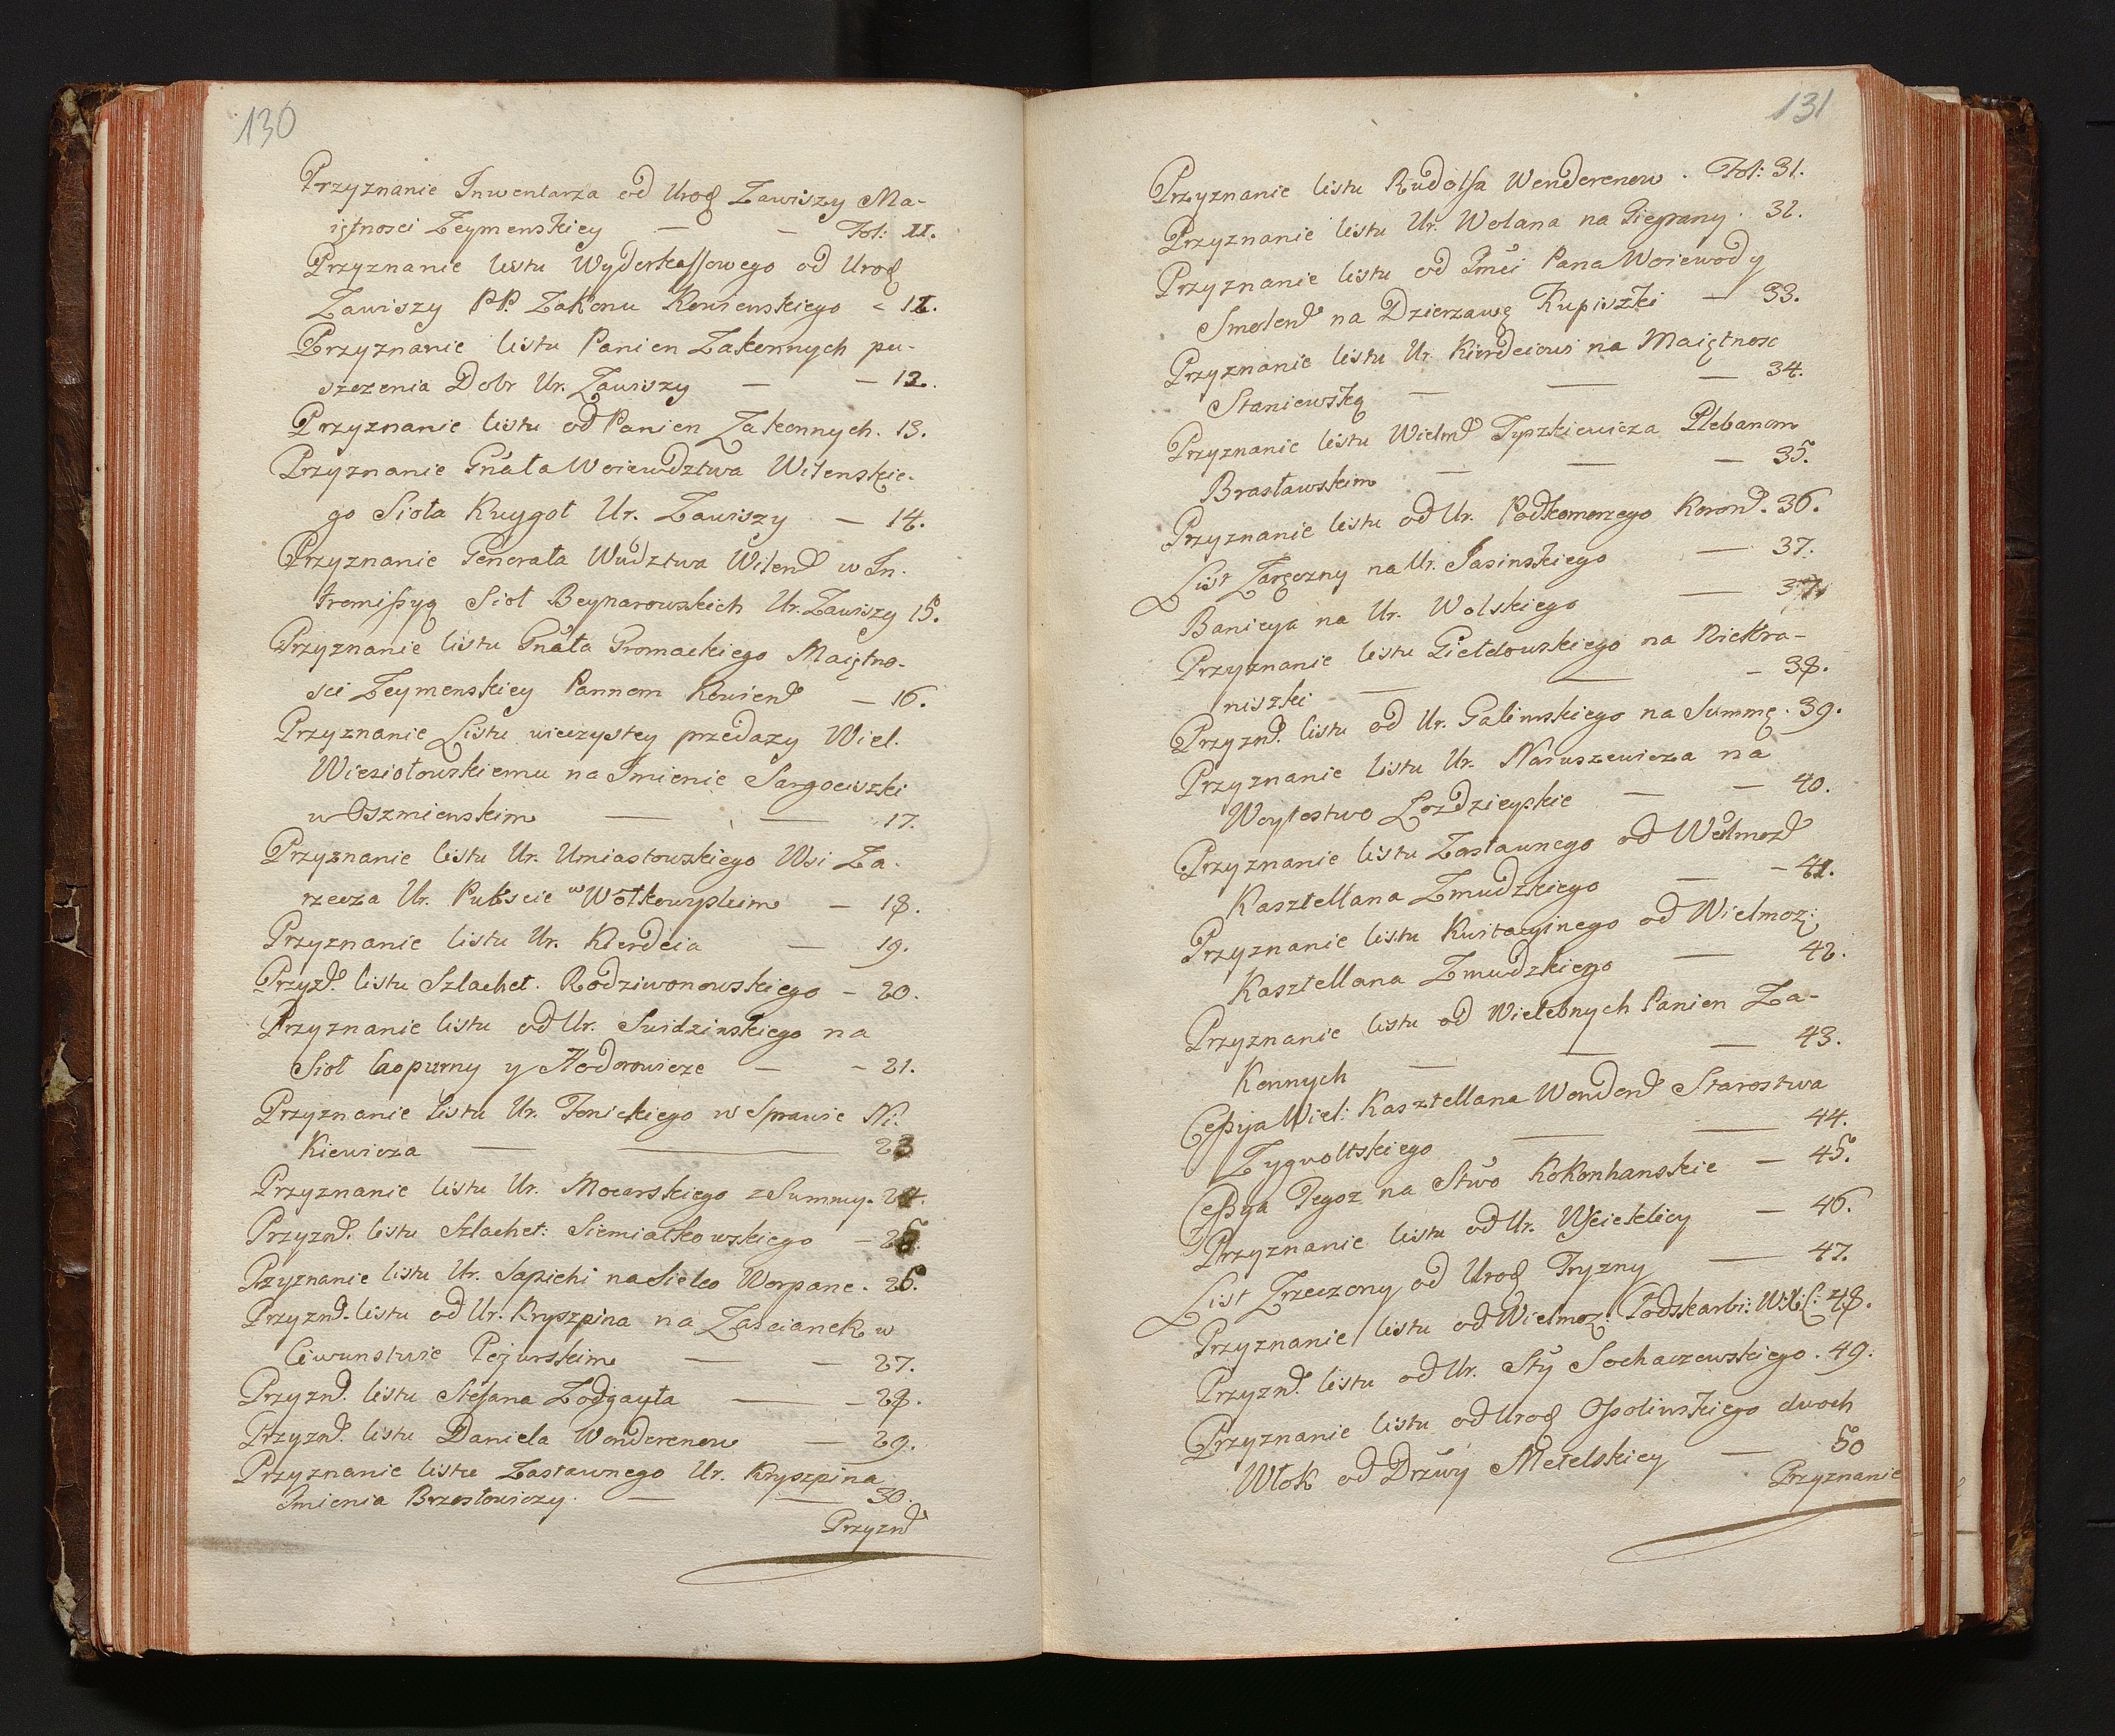 130
Przyznanie Inwentarza od Urod Zawiszy Ma-
iętnosci Zeymenskiey — — Fol: 11.
Przyznanie listu Wyderkaffowego od Urod
Zawiszy PP. Zakonu Kowienskiego - 12.
Przyznanie listu Panien Zakonnych pu-
szczenia Dobr Ur. Zawiszy — — 12.
Przyznanie listu od Panien Zakonnych. 13.
Przyznanie Gnała Woiewdztwa Wilenskie-
go Sioła Kuygol Ur. Zawiszy — 14.
Przyznanie Generała Wudztwa Wilend w In-
tromissyą Sioł Beynarowskich Ur. Zawiszy 15.
Przyznanie listu Gnała Gromackiego Maiętno-
sci Zeymenskiey Pannom Kowiend — 16.
Przyznanie Listu wieczystey przedazy Wiel.
Wiesiołowskiemu na Imienie Sargowszki
w Oszmienskim — — 17.
Przyznanie listu Ur. Umiastowskiego Wsi Za-
rzecza Ur. w Wołkowyskim — 18.
Przyznanie listu Ur. Kierdeia — 19.
Przyzd. listu Szlachet. Rodziwonowskiego — 20.
Przyznanie listu od Ur. Suidzinskiego na
Sioł Czopurny y Hodorowicze — — 21.
Przyznanie listu Ur. Tonickiego w Sprawie Ni-
kiewicza — — 23
Przyznanie listu Ur. Mocarskiego z Summy. 24.
Przyznd. listu Szlachet: Siemiatkowskiego — 25.
Przyznanie listu Ur. Sapiehi na Sielco Worpane. 26.
Przyznd. listu od Ur. Kryszpina na Zascianek w
Ciwunstwie Pojurskim — — 27.
Przyznd. listu Stefana Zodgayła — — 28.
Przyznd. listu Daniela Wonderenow — 29.
Przyznanie listu Zastawnego Ur. Kryszpina
Imienia Brzostowiczy. — — 30.
Przyznd
131
Przyznanie listu Rudolfa Wenderenow. Fol: 31.
Przyznanie listu Ur. Wolana na Giegrany. 32.
Przyznanie listu od Jmći Pana Woiewody
Smolend na Dzierzawę Kupiszki — 33.
Przyznanie listu Ur. Kierdeiowi na Maiętnosc
Staniewską — — — 34.
Przyznanie listu Wielmd Tyszkiewicza Plebanom
Brasławskim — — — 35.
Przyznanie listu od Ur. Podkomorzego Korond. 36.
List Zaręczny na Ur. Jasinskiego — 37.
Banicya na Ur. Wolskiego — 37.
Przyznanie listu Giełdowskiego na Niekra-
niszki — — — 38.
Przyznd. listu od Ur. Galimskiego na Summę. 39.
Przyznanie listu Ur. Naruszewicza na
Woytostwo Łozdzieyskie — — 40.
Przyznanie listu Zastawnego od Wielmozd
Kasztellana Zmudzkiego — — 41.
Przyznanie listu Kwitacyinego od Wielmoz:
Kasztellana Zmudzkiego — 42.
Przyznanie listu od Wielebnych Panien Za-
konnych — — — 43.
Cessyja Wiel: Kasztellana Wendend Starostwa
Zygwoltskiego — — 44.
Cessyja Tegoz na Stwo Kokonhanskie — 45.
Przyznanie listu od Ur. Wscieklicy — 46.
List Zrzeczony od Urod Tryzny — 47.
Przyznanie listu od Wielmoz: Podskarbi: W.X.L: 48.
Przyznd. listu od Ur. Sty Sochaczewskiego. 49.
Przyznanie listu od Urod Ossolinskiego dwoch
Włok od Drzwy Metelskiey — 50
Przyznanie